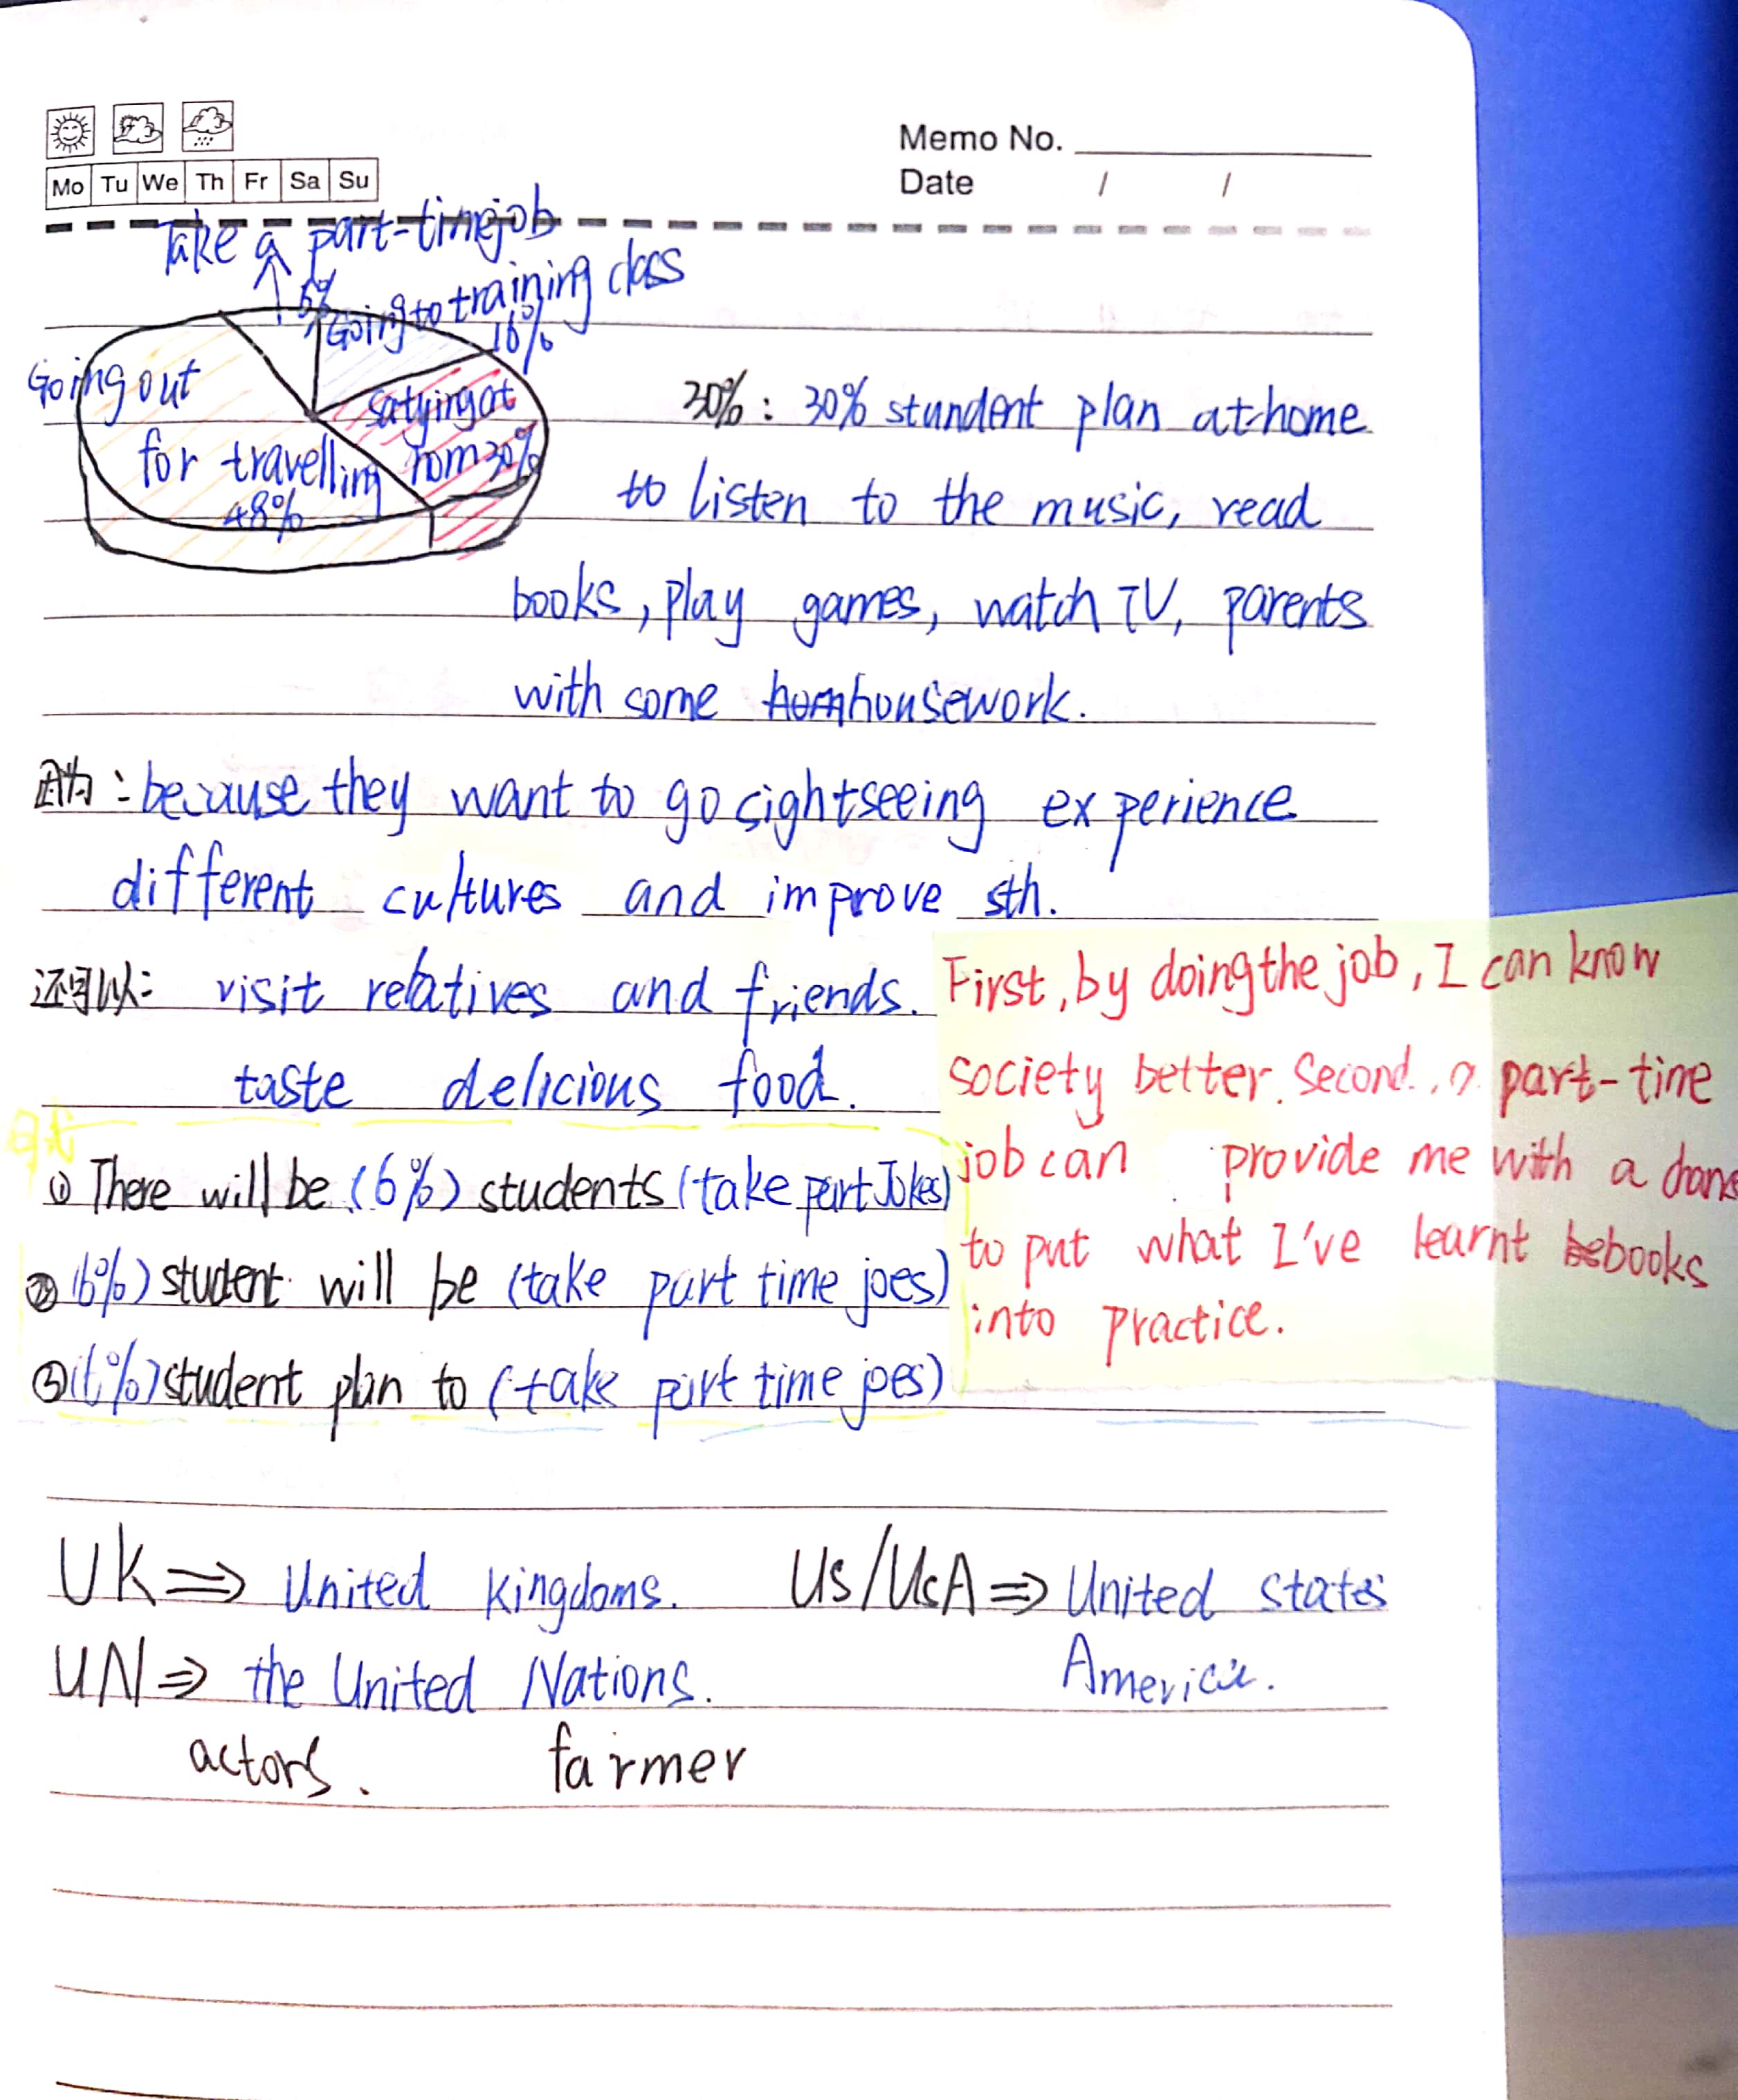 Memo No.
Mo Tu We Th Fr Sa Su
Date / /
Take a part-time job
6%
Going to training class
16%
Going out
for travelling
48%
satying at
hom 30%
30%: 30% stundent plan at home
to listen to the music, read
books, play games, watch TV, parents
with some housework.
因为: because they want to go sightseeing experience
different cultures and improve sth.
还可以: visit relatives and friends.
taste delicious food.
① There will be (6%) students (take part Jokes)
② (6%) student will be (take part time joes)
③ (6%) student plan to (take part time joes)
First, by doing the job, I can know
society better. Second, a part-time
job can provide me with a
to put what I've learnt books
into practice.
UK ⇒ United Kingdoms. US/USA ⇒ United states
America.
UN ⇒ the United Nations.
actors. farmer